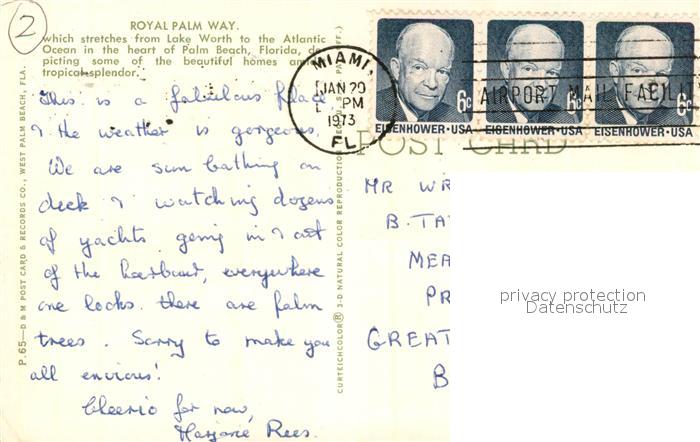 2
ROYAL PALM WAY.
which stretches from Lake Worth to the Atlantic
Ocean in the heart of Palm Beach, Florida, de-
picting some of the beautiful homes and
tropical splendor.
This is a fabulous place
& the weather is gorgeous,
We are sun bathing on
deck & watching dozens
of yachts going in & out
of the harbour, everywhere
one looks there are palm
trees. Sorry to make you
all envious!
Cheerio for now,
Marjorie Rees.
P.65—D & M POST CARD & RECORDS CO., WEST PALM BEACH, FLA.
CURTEICHCOLOR® 3-D NATURAL COLOR REPRODUCTION
MIAMI,
JAN 29
PM
1973
FL
AIRPORT MAIL FACILITY
6c
EISENHOWER·USA
6c
EISENHOWER·USA
6c
EISENHOWER·USA
POST CARD
MR WR
B. TA
MEA
PR
GREAT
B
privacy protection
Datenschutz